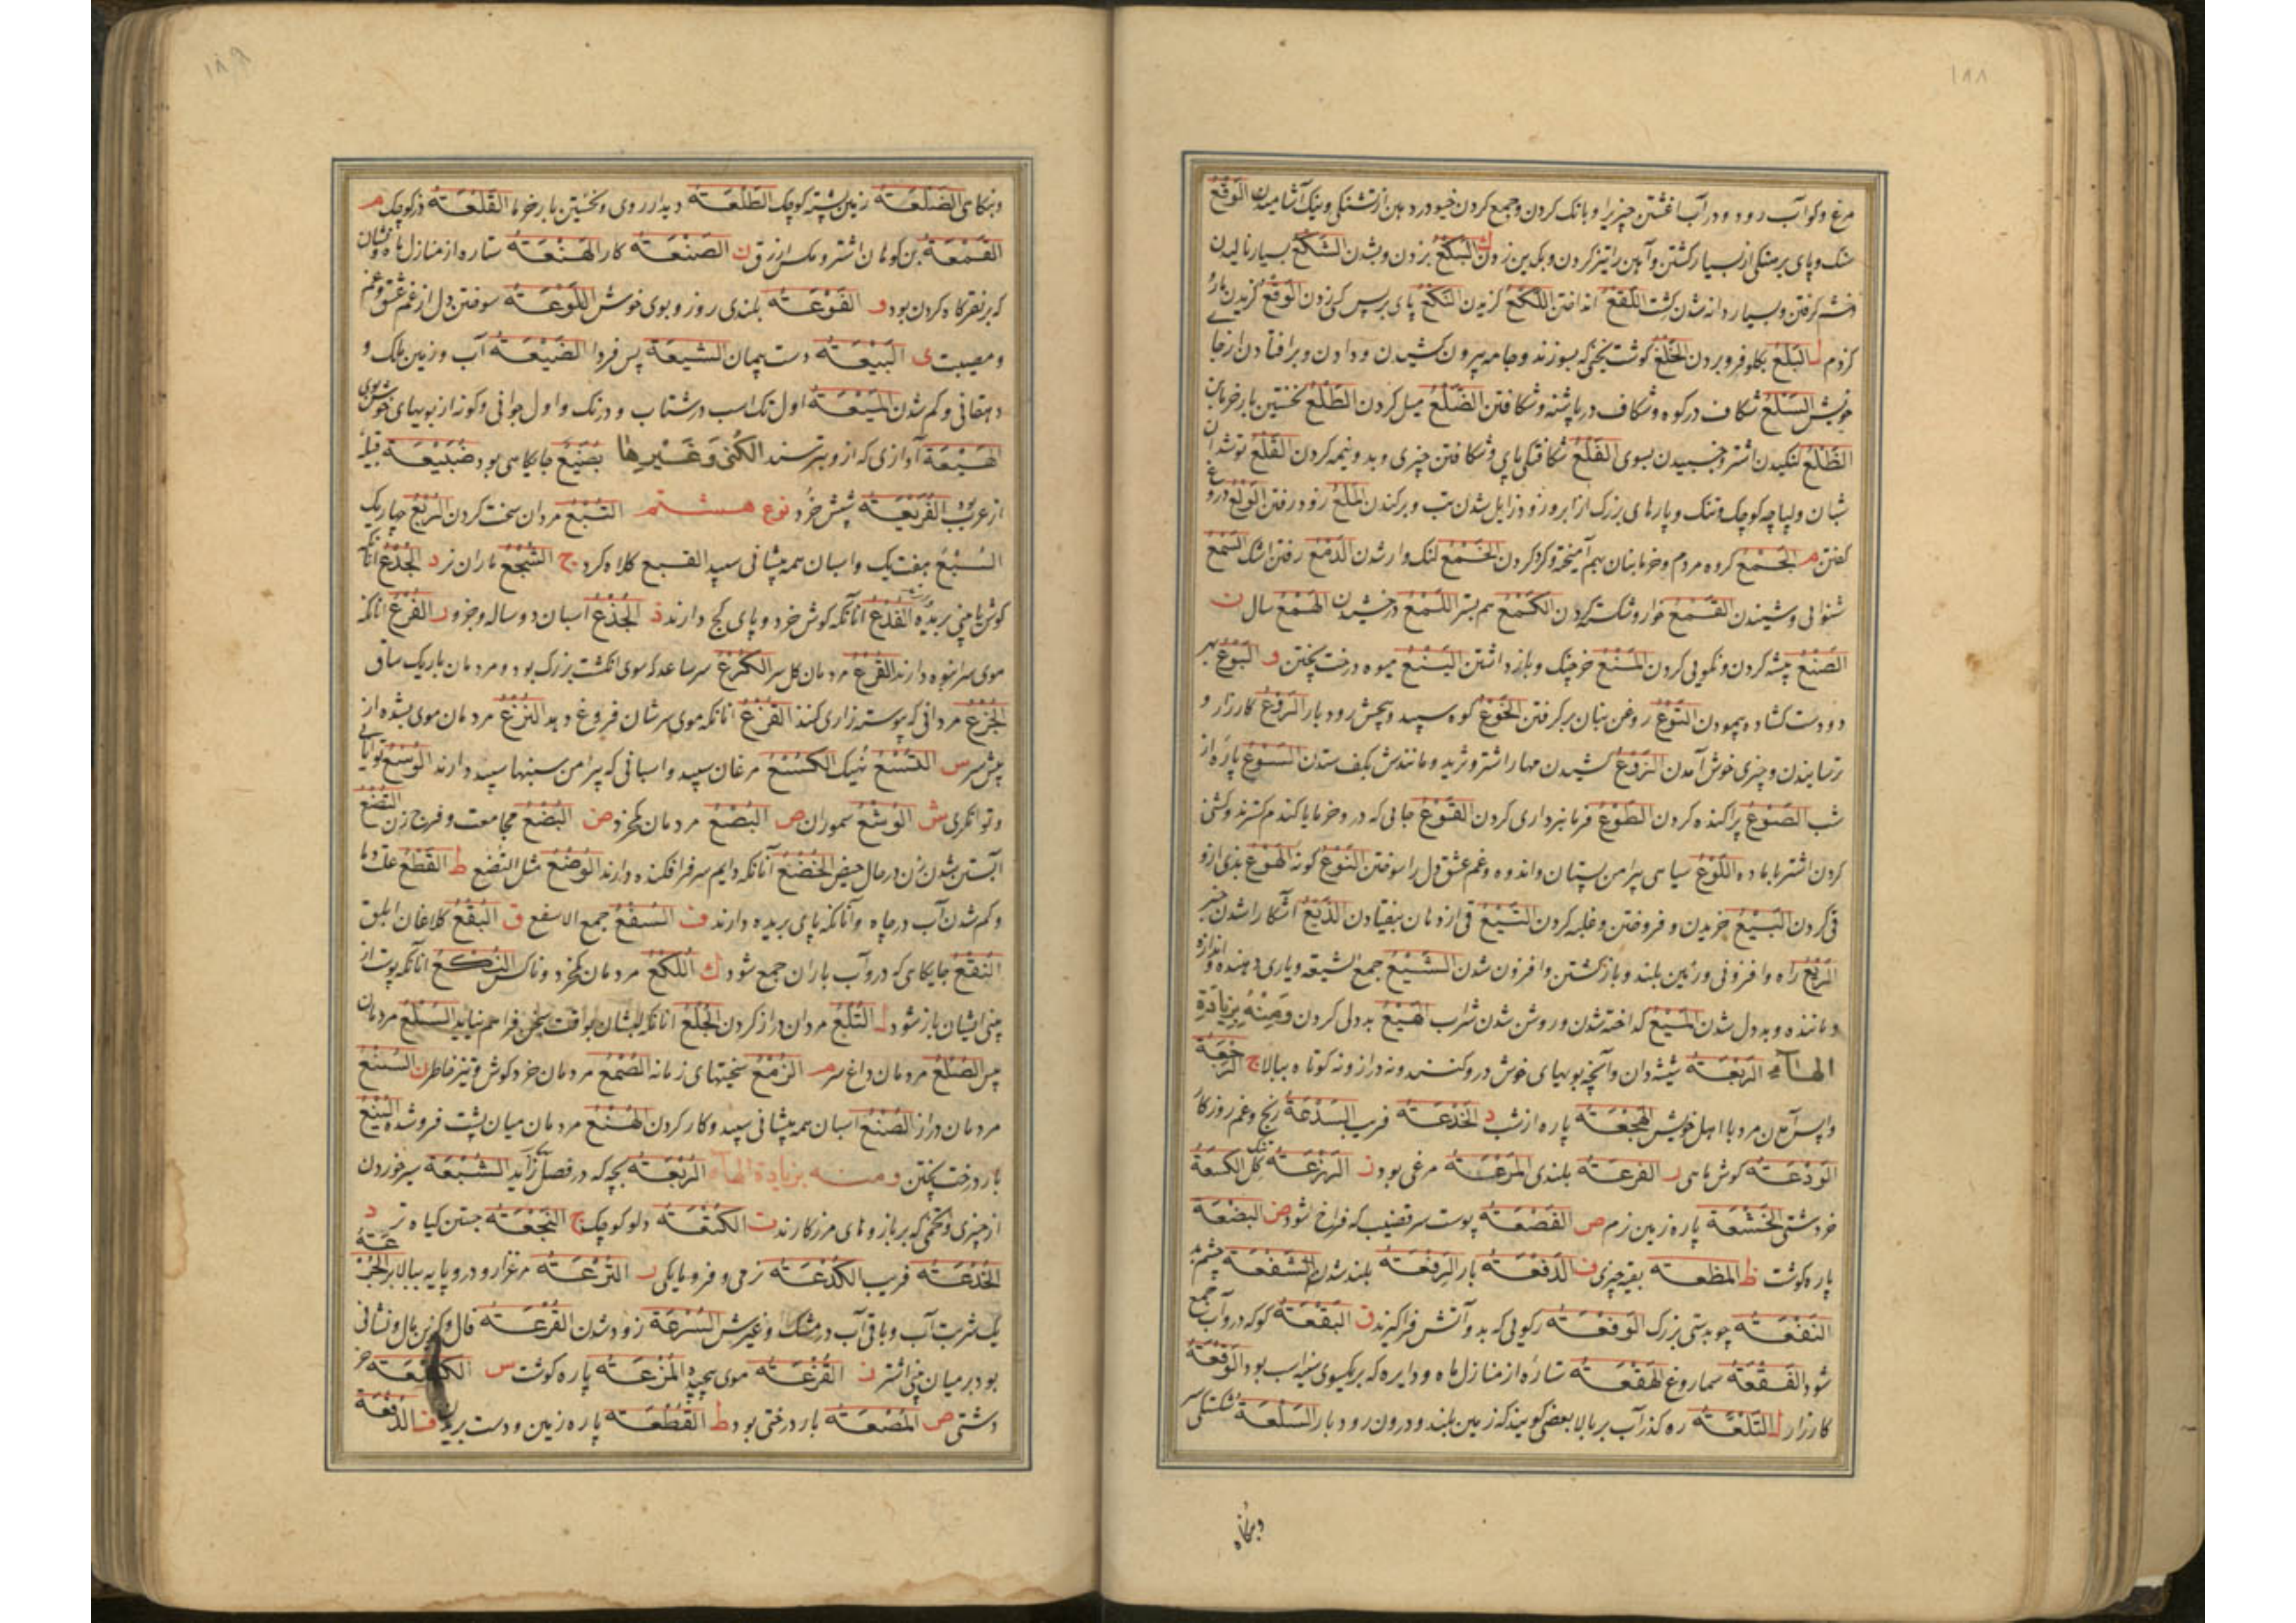 ۱۸۸
مرغ و کو آب رود و در آب آغشتن چیزی را و بانک کردن و جمع کردن خیو در دهن از تشنگی و نیک آشامیدن الوَقْعُ
سنک و پای برهنکی از بسیار کشتن و آهن را تیز کردن و بکدین زدن ك البَكْعُ بزدن و بشدن الشَكْعُ بسیار نالیدن
کرفتن و بسیار دانه شدن کشت اللَقْعُ انداختن اللَكْعُ کزیدن النَكْعُ پای بر پس کسی زدن الوَكْعُ کزیدن مار
کزدم ل البَلْعُ بکلو فرو بردن الخَلْعُ کوشت پخته که بسوزند و جامه بیرون کشیدن و دادن و بر افتادن از جا
خویش السَلْعُ شکاف در کوه و شکاف در پاشنه و شکافتن الضَلْعُ میل کردن الطَلْعُ نخستین بار خرمابن
الظَلْعُ لنکیدن اشتر و خسبیدن بسوی الفَلْعُ شکافتکی پای و شکافتن چیزی و بدو نیمه کردن القَلْعُ توشدان
شبان و لپاچه کوچک و تنک و پارهای بزرک از ابر و زود زایل شدن تب و برکندن المَلْعُ زود رفتن الوَلْعُ دروغ
کفتن م الجَمْعُ کروه مردم و خرمابنان بهم آمیخته و کرد کردن الخَمْعُ لنک وار شدن الدَمْعُ رفتن اشک السَمْعُ
شنوائی و شنیدن القَمْعُ خوار و شکسته کردن الكَمْعُ هم بستر اللَمْعُ درخشیدن الهَمْعُ سال ن
الصَنْعُ پیشه کردن و نکویی کردن المَنْعُ خرچنک و باز داشتن اليَنْعُ میوه درخت پختن و البَوْعُ بهر
دو دست کشاده پیمودن التَوْعُ روغن بنان بر کرفتن الخَوْعُ کوه سپید و پیچش رودبار الرَوْعُ کارزار و
ترسانیدن و چیزی خوش آمدن الزَوْعُ کشیدن مهار اشتر و ثرید و مانندش بکف ستدن السَوْعُ پارهٔ از
شب الصَوْعُ پراکنده کردن الطَوْعُ فرمانبرداری کردن القَوْعُ جائی که درو خرما یا کندم کسترند و کشنی
کردن اشتر با ماده اللَوْعُ سیاهی پیرامن پستان و اندوه و غم عشق دل را سوختن النَوْعُ کونه الهَوْعُ بدی آرزو
قی کردن البَيْعُ خریدن و فروختن و غلبه کردن التَيْعُ قی از دهان بیفتادن الذَيْعُ آشکارا شدن خبر
الرَيْعُ راه و افزونی و زمین بلند و بازکشتن و افزون شدن الشَيْعُ جمع الشیعه و یاری دهنده و اندازه
و ماننده و بددل شدن المَيْعُ کداخته شدن و روشن شدن شراب الهَيْعُ بددلی کردن وَمِنْهُ بِزِيَادَةِ
الهاءِ الرَبْعَةُ شیشه‌دان و آنچه بویهای خوش درو کنند و نه دراز و نه کوتاه ببالا ج الرَجْعَة
واپس آمدن مرد با اهل خویش الهَجْعَةُ پاره از شب د الخَدْعَةُ فریب السَدْعَةُ رنج و غم روزکار
الوَدْعَةُ کوش ماهی ر الفَرْعَةُ بلندی المَرْعَةُ مرغی بود ز الهَزْعَةُ کل تنک الكَسْعَةُ
خر دشتی الخَشْعَةُ پاره زمین نرم ص القَصْعَةُ پوست سر قضیب که فراخ شود ض البَضْعَةُ
پاره کوشت ظ المَظْعَةُ بقیه چیزی ف الدَفْعَةُ بار الرَفْعَةُ بلند شدن الشَفْعَةُ چشم بد
النَفْعَةُ چوبدستی بزرک الوَفْعَةُ رکوئی که بدو آتش فرا کیرند ق البَقْعَةُ کوکه درو آب جمع
شود الفَقْعَةُ سماروغ الهَقْعَةُ ستاره از منازل ماه و دایره که بر پکسوی سینه اسب بود الوَقْعَةُ
کارزار ل التَلْعَةُ ره کذر آب بر بالا بعضی کویند که زمین بلند و درون رودبار السَلْعَةُ شکستکی سر
وبنکاه
۱۸۹
وبنکاهی الضَلْعَةُ زمین پشته کوچک الطَلْعَةُ دیدار روی و نخستین بار خرما القَلْعَةُ دز کوچک م
القَمْعَةُ بن کوهان اشتر و مکس ازرق ن الصَنْعَةُ کار الهَنْعَةُ ستاره از منازل ماه و نشان
که بر نقره‌کاه کردن بود و الفَوْعَةُ بلندی روز و بوی خوش اللَوْعَةُ سوختن دل از غم عشق و غم
و مصیبت ی البَيْعَةُ دست پیمان الشَيْعَةُ پس فردا الضَيْعَةُ آب و زمین ملک و
دهقانی و کم شدن المَيْعَةُ اول تک اسب در شتاب و درنک و اول جوانی و کونه از بویهای خوش بوی
الهَيْعَةُ آوازی که ازو بترسند الكُنى وَغَيْرِها بَضِيْعُ جایکاهی بود ضَبْيعَةُ قبیله
از عرب بود القَرْيْعَةُ شپش خرد نوع هشتم التُبْعُ مردان سخت کردن الرُبْعُ چار یک
السُبْعُ هفت یک و اسبان همه پیشانی سپید القبع کلاه کرد ج الشُجْعُ ماران نر د الجُدْعُ آنانکه
کوش یا بینی بریده الفُدْعُ آنانکه کوش خرد و پای کج دارند ذ الجُذْعُ اسبان دو ساله و جزو ر الفُرْعُ آنانکه
موی سر انبوه دارند القُرْعُ مردمان کل سر الكُرْعُ سر ساعد که سوی انکشت بزرک بود و مردمان باریک ساق
الجُزْعُ مردانی که پیوسته زاری کنند القُزْعُ آنانکه موی سرشان فروغ دهد النُزْعُ مردمان موی بشده از
پیش سر س التُسْعُ نُه‌یک الكُسْعُ مرغان سپید و اسبانی که پیرامن سنبها سپید دارند الوُسْعُ توانائی
و توانکری ش الوُشْعُ سموران ص البُصْعُ مردمان کم خرد ض البُضْعُ مجامعت و فرج زن التُضْعُ
آبستن شدن زن در حال حیض الخُضْعُ آنانکه دایم سر فرا فکنده دارند الوُضْعُ مثل التُضْع ط القُطْعُ علت دما
و کم شدن آب در چاه و آنانکه پای بریده دارند ف السُفْعُ جمع الاسفع ق البُقْعُ کلاغان ابلق
النُقْعُ جایکاهی که درو آب باران جمع شود ك اللُكْعُ مردمان کم خرد و ناکس النُكْعُ آنانکه پوست از
بینی ایشان باز شود ل التُلْعُ مردان دراز کردن الجُلْعُ آنانکه لبشان بوقت سخن فراهم نیاید السُلْعُ مردمان
پیس الصُلْعُ مردمان داغ سر م الزُمْعُ سختیهای زمانه الصُمْعُ مردمان خرد کوش و تیز خاطر ن السُنْعُ
مردمان دراز الصُنْعُ اسبان همه پیشانی سپید و کار کردن الهُنْعُ مردمان میان پشت فرو شده اليُنْعُ
بار درخت پختن ومنه بزيادة الهاء الرُبْعَةُ بچه که در فصل زاید الشُبْعَةُ سیر خوردن
از چیزی و تخمی که بر بازوهای مرز کارند ت الكُتْعَةُ دلو کوچک ج النُجْعَةُ جستن کیاه تر د
الخُدْعَةُ فریب الكُدْعَةُ نرمی و فرومایکی ر التُرْعَةُ مرغزار و در و پایه ببالا بر الجُرْعَةُ
یک شربت آب و باقی آب در مشک و غیرش السُرْعَةُ زود شدن القُرْعَةُ فال و کزین مال و نشانی
بود بر میان بینی اشتر ز القُزْعَةُ موی پیچیده المُزْعَةُ پاره کوشت س الكُسْعَةُ خر
دشتی ص المُصْعَةُ بار درختی بود ط القُطْعَةُ پاره زمین و دست بریدن ف الدُفْعَةُ